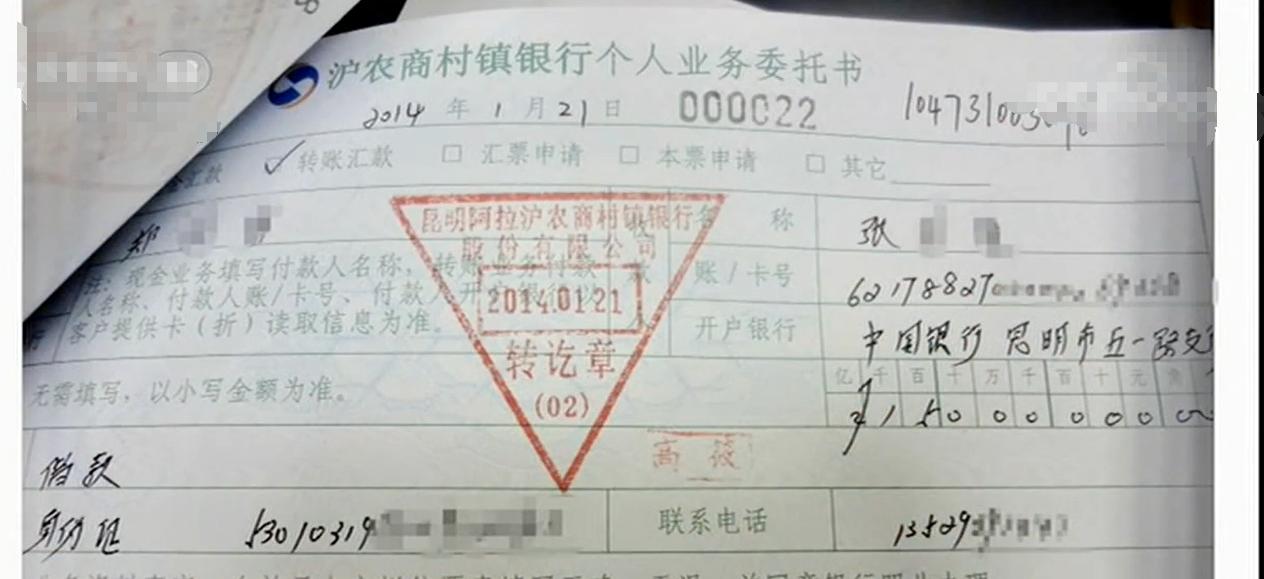 沪农商村镇银行个人业务委托书
2014 年 1 月 21 日 000022 104731003
汇款 ✓ 转账汇款 □ 汇票申请 □ 本票申请 □ 其它
郑
名 称 张
注：现金业务填写付款人名称，转账业务付款
人名称、付款人账/卡号、付款人开户银行以
客户提供卡（折）读取信息为准。
账/卡号 62178827
开户银行 中国银行 昆明市五一路支
昆明阿拉沪农商村镇银行
股份有限公司
2014.01.21
转讫章
(02)
无需填写，以小写金额为准。
亿 千 百 十 万 千 百 十 元 角
¥ 1 5 0 0 0 0 0 0 0
高筱
借款
身份证 53010319 联系电话 13529